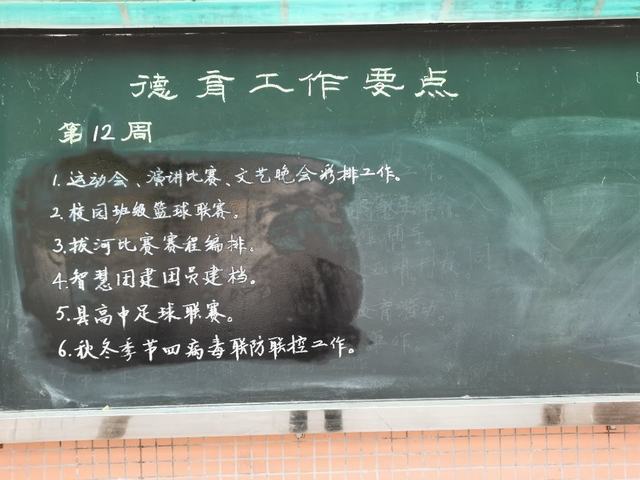 德育工作要点
第12周
1.运动会、演讲比赛、文艺晚会彩排工作。
2.校园班级篮球联赛。
3.拔河比赛赛程编排。
4.智慧团建团员建档。
5.县高中足球联赛。
6.秋冬季节四病毒联防联控工作。